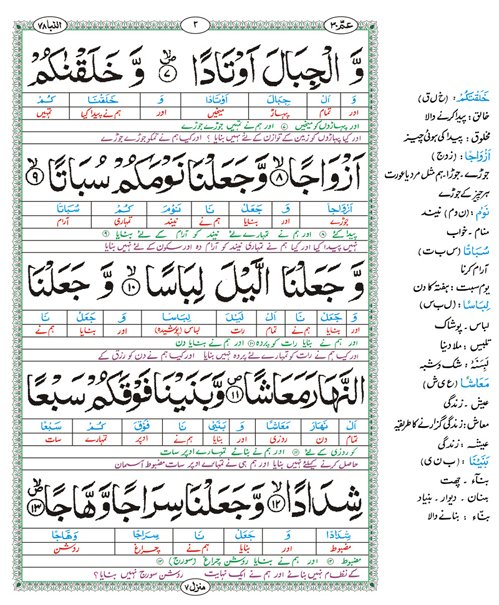 النبا ٧٨
٢
عمّ ٣٠
وَّ الْجِبَالَ اَوْتَادًا ۪ۙ ﴿۷﴾ وَّ خَلَقْنٰكُمْ
وَ الْ جِبَالَ اَوْتَادًا وَ خَلَقْنَا كُمْ
اور تمام پہاڑ میخیں اور ہم نے پیدا کیا تمہیں
اور پہاڑوں کو میخیں ۷ اور ہم نے تمہیں جوڑے جوڑے
اور کیا پہاڑوں کو زمین کے توازن کے لئے نہیں بنایا ؟ اور کیا ہم نے تم کو جوڑے جوڑے
اَزْوَاجًا ۙ﴿۸﴾ وَّ جَعَلْنَا نَوْمَكُمْ سُبَاتًا ۙ﴿۹﴾
اَزْوَاجًا وَ جَعَلْ نَا نَوْمَ كُمْ سُبَاتًا
جوڑے اور بنایا ہم نے نیند تمہاری آرام
پیدا کئے ۸ اور ہم نے تمہاری نیند کو آرام کے لئے بنایا ۹
نہیں پیدا کیا اور کیا ہم نے تمہاری نیند کو آرام دہ اور سکون کے لئے نہیں بنایا
وَّ جَعَلْنَا الَّيْلَ لِبَاسًا ۙ﴿۱۰﴾ وَّ جَعَلْنَا
وَ جَعَلْ نَا الْ لَيْلَ لِبَاسًا وَ جَعَلْ نَا
اور بنایا ہم نے رات لباس (پوشیدہ) اور بنایا ہم نے
اور ہم نے بنایا رات کو پردہ ۱۰ اور ہم نے بنایا دن
اور کیا ہم نے رات کو تمہارے لئے پردہ نہیں بنایا اور کیا ہم نے دن کو رزق کے
النَّهَارَ مَعَاشًا ۪﴿۱۱﴾ وَّ بَنَيْنَا فَوْقَكُمْ سَبْعًا
الْ نَهَارَ مَعَاشًا وَ بَنَيْ نَا فَوْقَ كُمْ سَبْعًا
تمام دن روزی اور بنایا ہم نے اوپر تمہارے سات
کو روزی کے لئے ۱۱ اور ہم نے بنائے تمہارے اوپر سات
حاصل کرنے کیلئے نہیں بنایا اور ہم ہی نے تمہارے اوپر سات مضبوط آسمان
شِدَادًا ۙ﴿۱۲﴾ وَّ جَعَلْنَا سِرَاجًا وَّهَّاجًا ۪ۙ﴿۱۳﴾
شِدَادًا وَ جَعَلْ نَا سِرَاجًا وَهَّاجًا
مضبوط اور بنایا ہم نے چراغ روشن
مضبوط ۱۲ اور ہم نے بنایا روشن چراغ (سورج) ۱۳
کے نظام نہیں بنائے اور ہم نے ایک نہایت روشن سورج نہیں بنایا ؟
منزل ۷
خَلَقْنٰكُمْ : (خ ل ق)
خالق : پیدا کرنے والا
مخلوق : پیدا کی ہوئی چیز
اَزْوَاجًا : (زوج)
جوڑے ، جوڑا ، ہم مثل مرد یا عورت
ہر چیز کے جوڑے
نَوْم : (ن و م) نیند
منام - خواب
سُبَاتًا : (س ب ت)
آرام کرنا
یوم سبت : ہفتہ کا دن
لِبَاسًا : (ل ب س)
لباس - پوشاک
تلبیس : ملا دینا
لبسۃ : شک و شبہ
مَعَاشًا : (ع ی ش)
عیش - زندگی
معاش : زندگی گزارنے کا طریقہ
عیشہ - زندگی
بَنَيْنَا : (ب ن ی)
بناء - چھت
بنیان - دیوار - بنیاد
بناء : بنانے والا